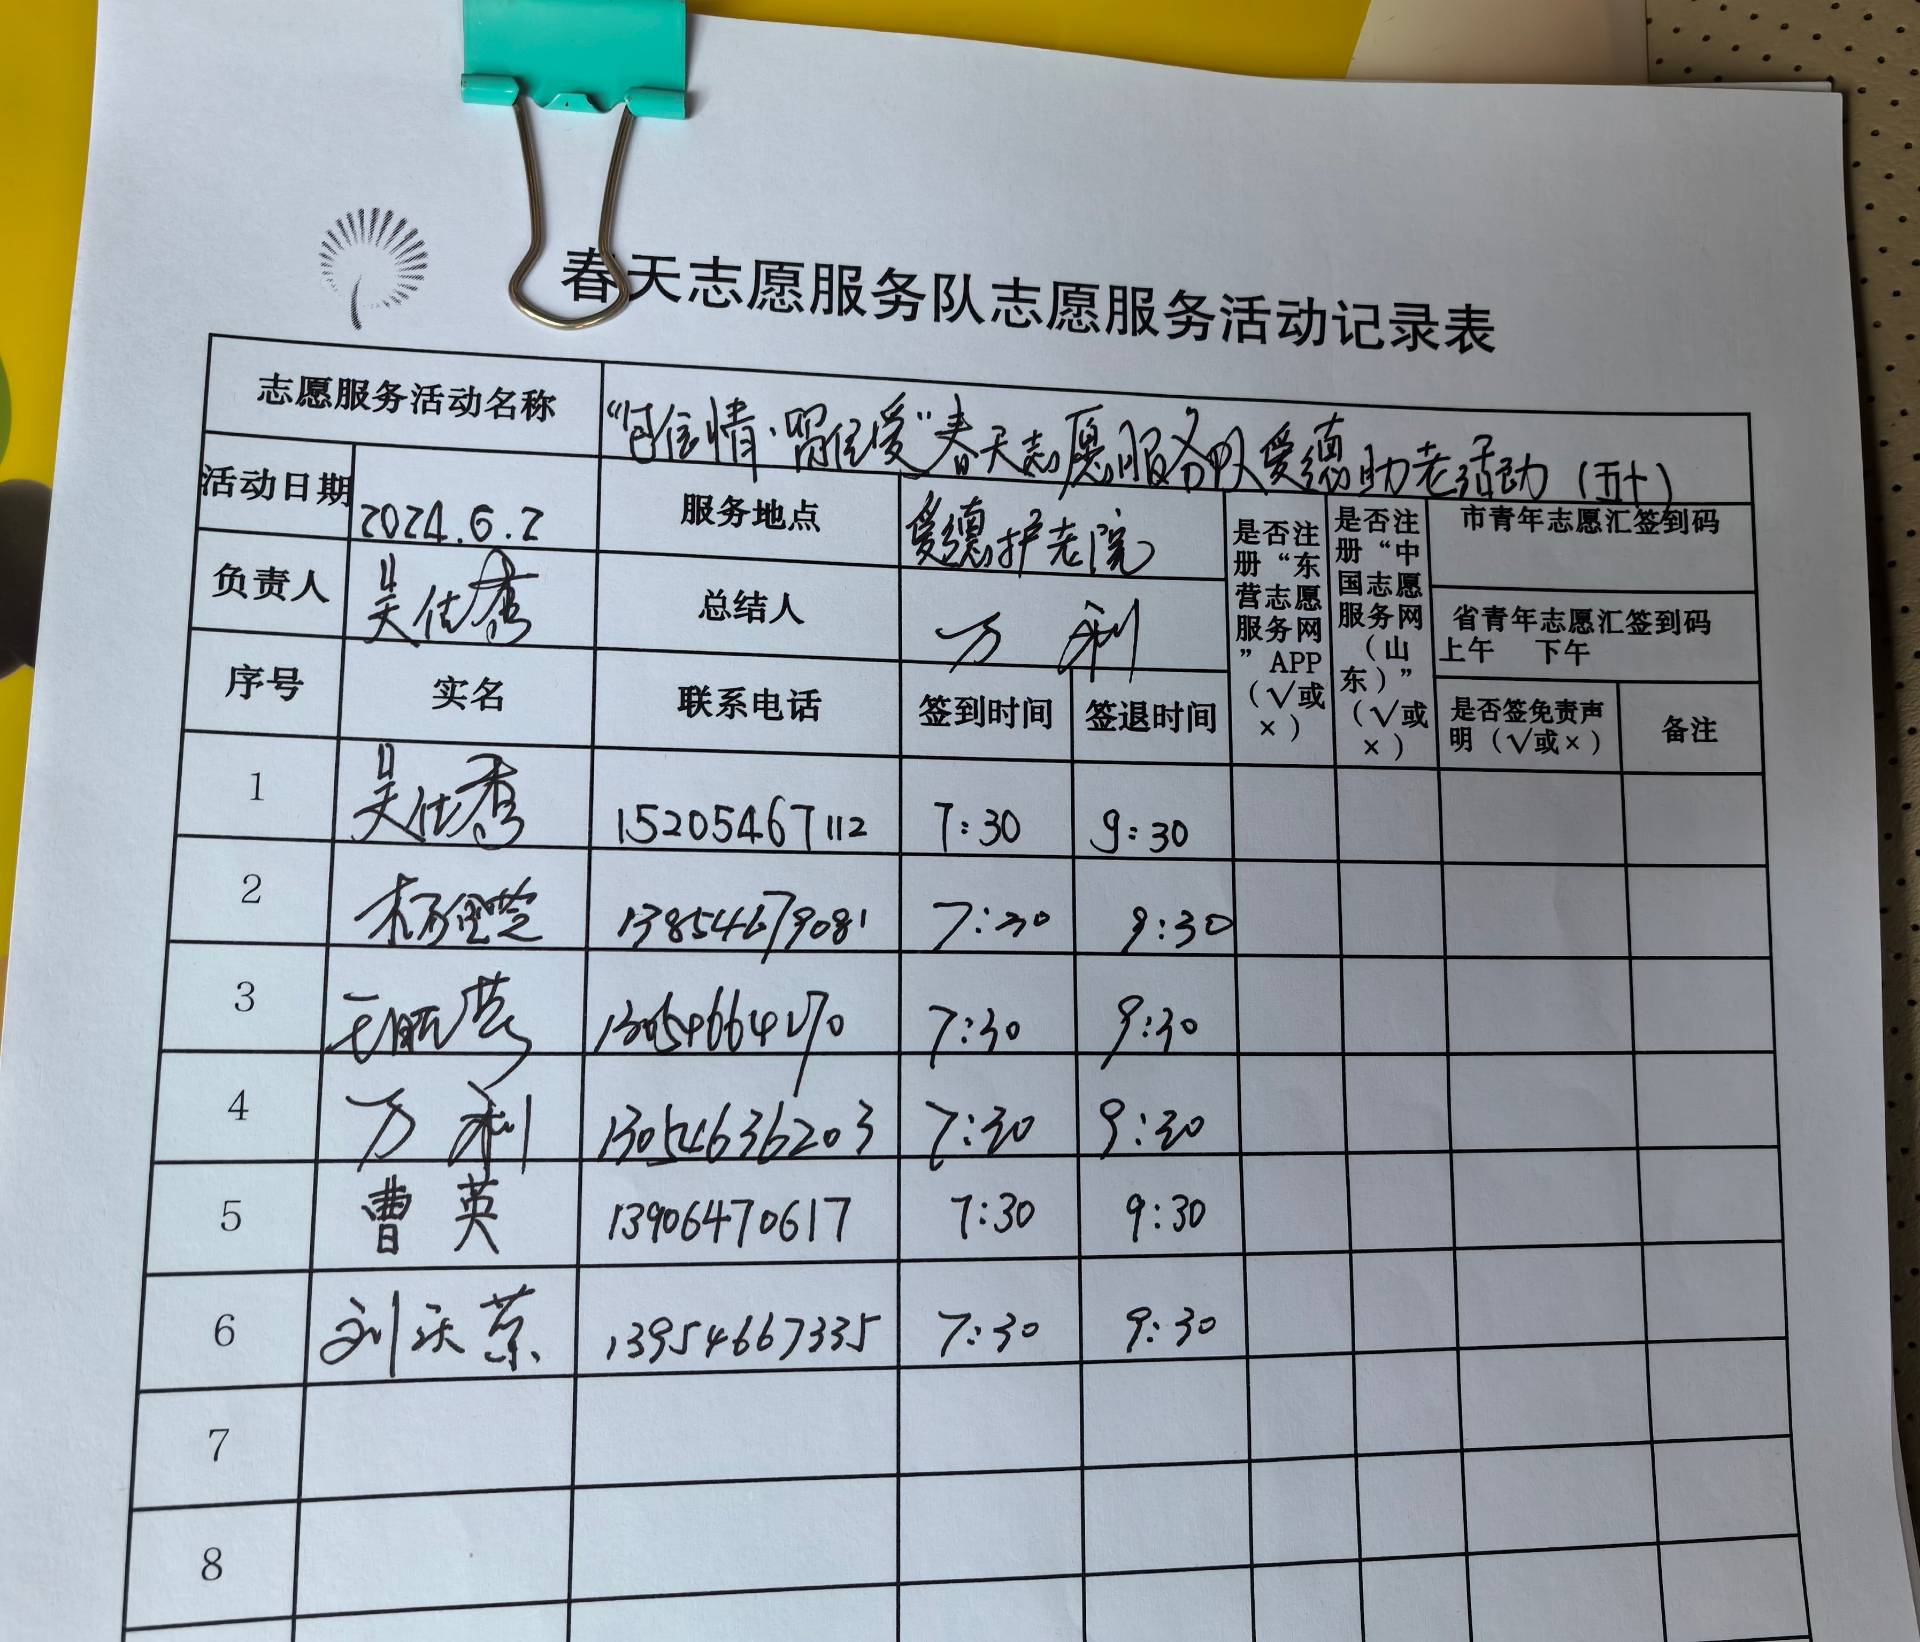 春天志愿服务队志愿服务活动记录表
志愿服务活动名称 情·留住爱"春天志愿服务队爱德助老活动（五十）
活动日期 2024.6.2 服务地点 爱德护老院 是否注册“东营志愿服务网”APP（√或×） 是否注册“中国志愿服务网（山东）”（√或×） 市青年志愿汇签到码
负责人 吴仕秀 总结人 万利 省青年志愿汇签到码 上午 下午
序号 实名 联系电话 签到时间 签退时间 是否签免责声明（√或×） 备注
1 吴仕秀 15205467112 7:30 9:30
2 13854679081 7:30 9:30
3 7:30 9:30
4 万利 13054636203 7:30 9:30
5 曹英 13906470617 7:30 9:30
6 刘 13954667335 7:30 9:30
7
8